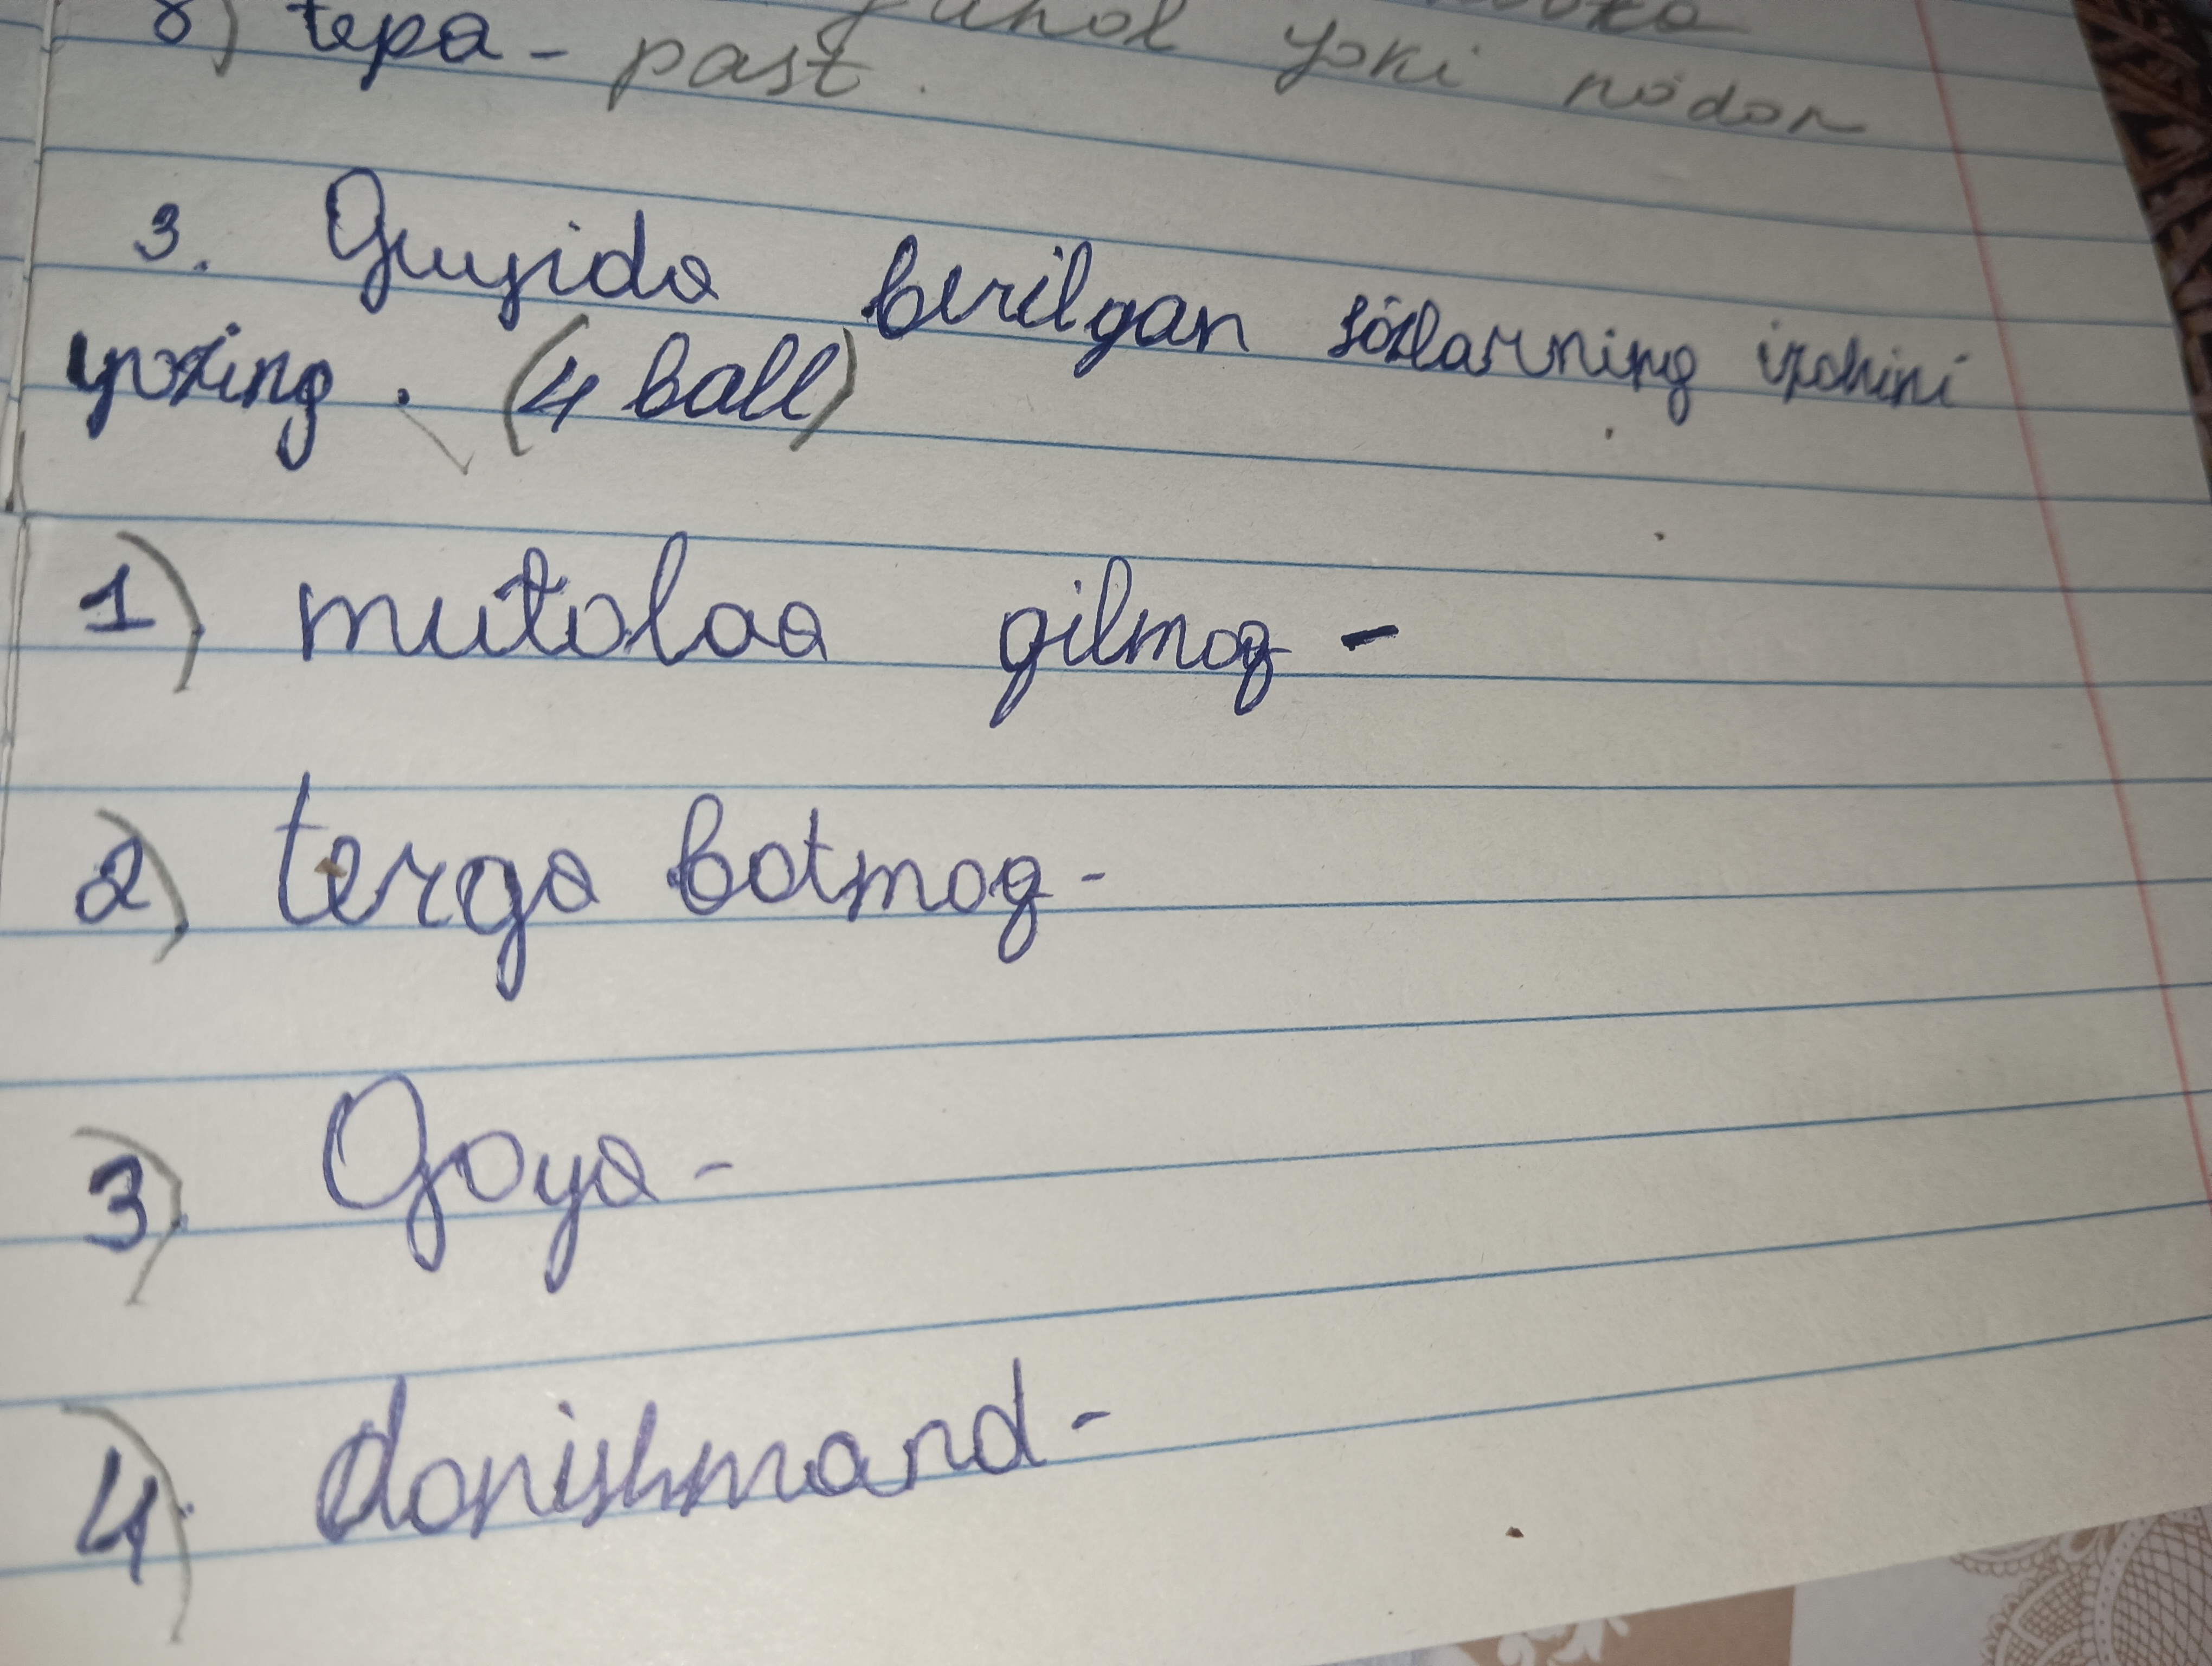 8) tepa - past.
yoki nodon
3. Quyida berilgan so'zlarning izohini
yozing. (4 ball)
1) mutolaa qilmoq -
2) terga botmoq -
3) Goya -
4) donishmand -